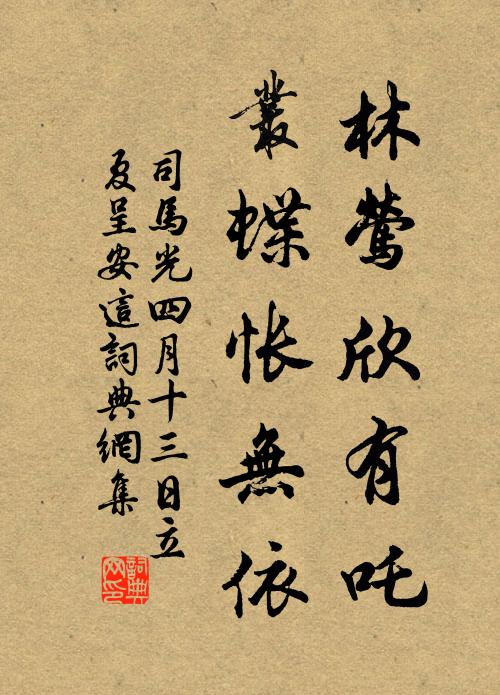 林鶯欣有吒
叢蝶悵無依
司馬光四月十三日立
夏呈安這詞典網集
詞典网印